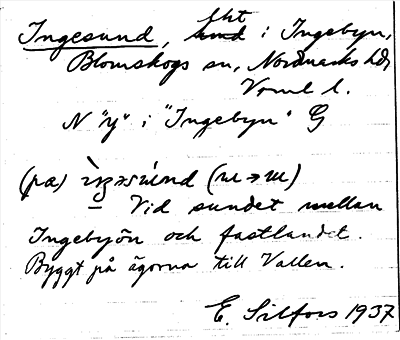 fht
Ingesund, sund i Ingebyn,
Blomskogs sn, Nordmarks hd,
Vrml l.
N "y" i "Ingebyn" G
(pa)
Vid sundet mellan
Ingebyön och fastlandet.
Byggt på ägorna till Vallen.
E. Silfors 1937